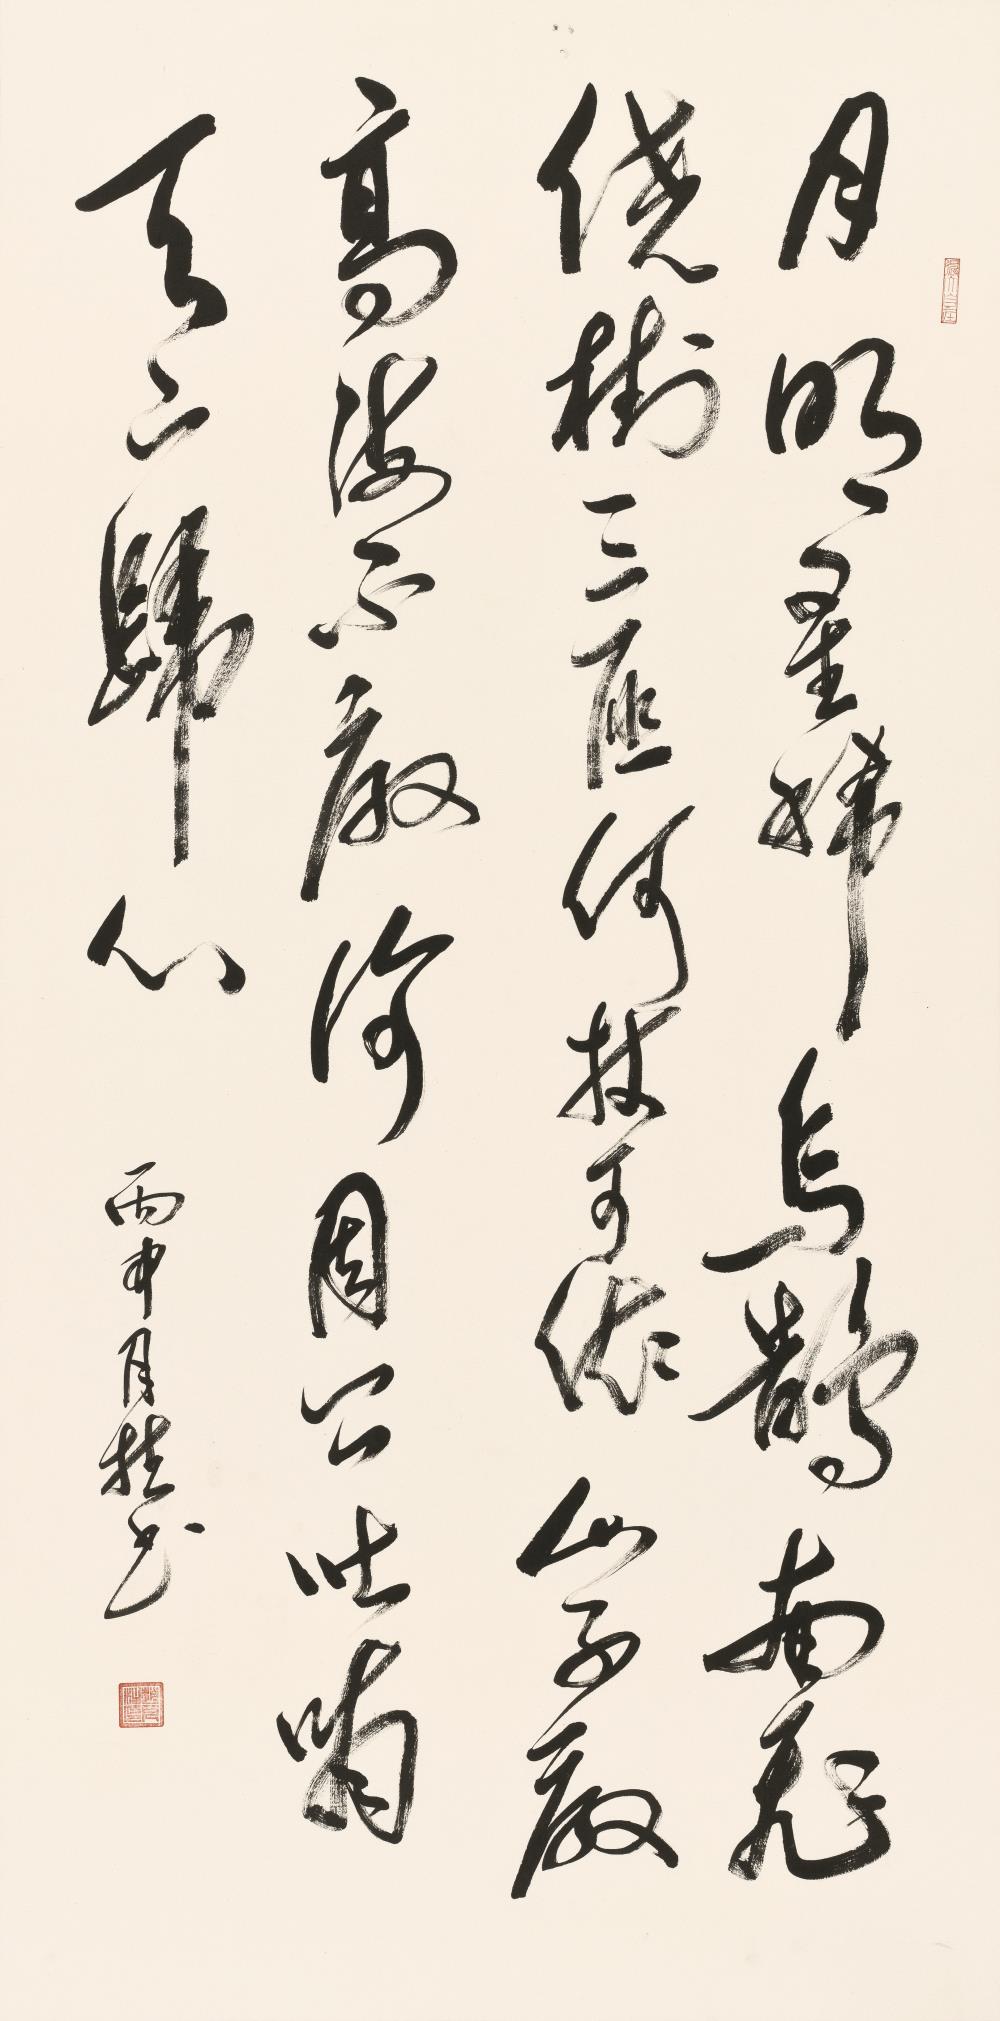 月明星稀烏鵲南飛
繞樹三匝何枝可依山不厭
高海不厭深周公吐哺
天下歸心
丙申月桂书